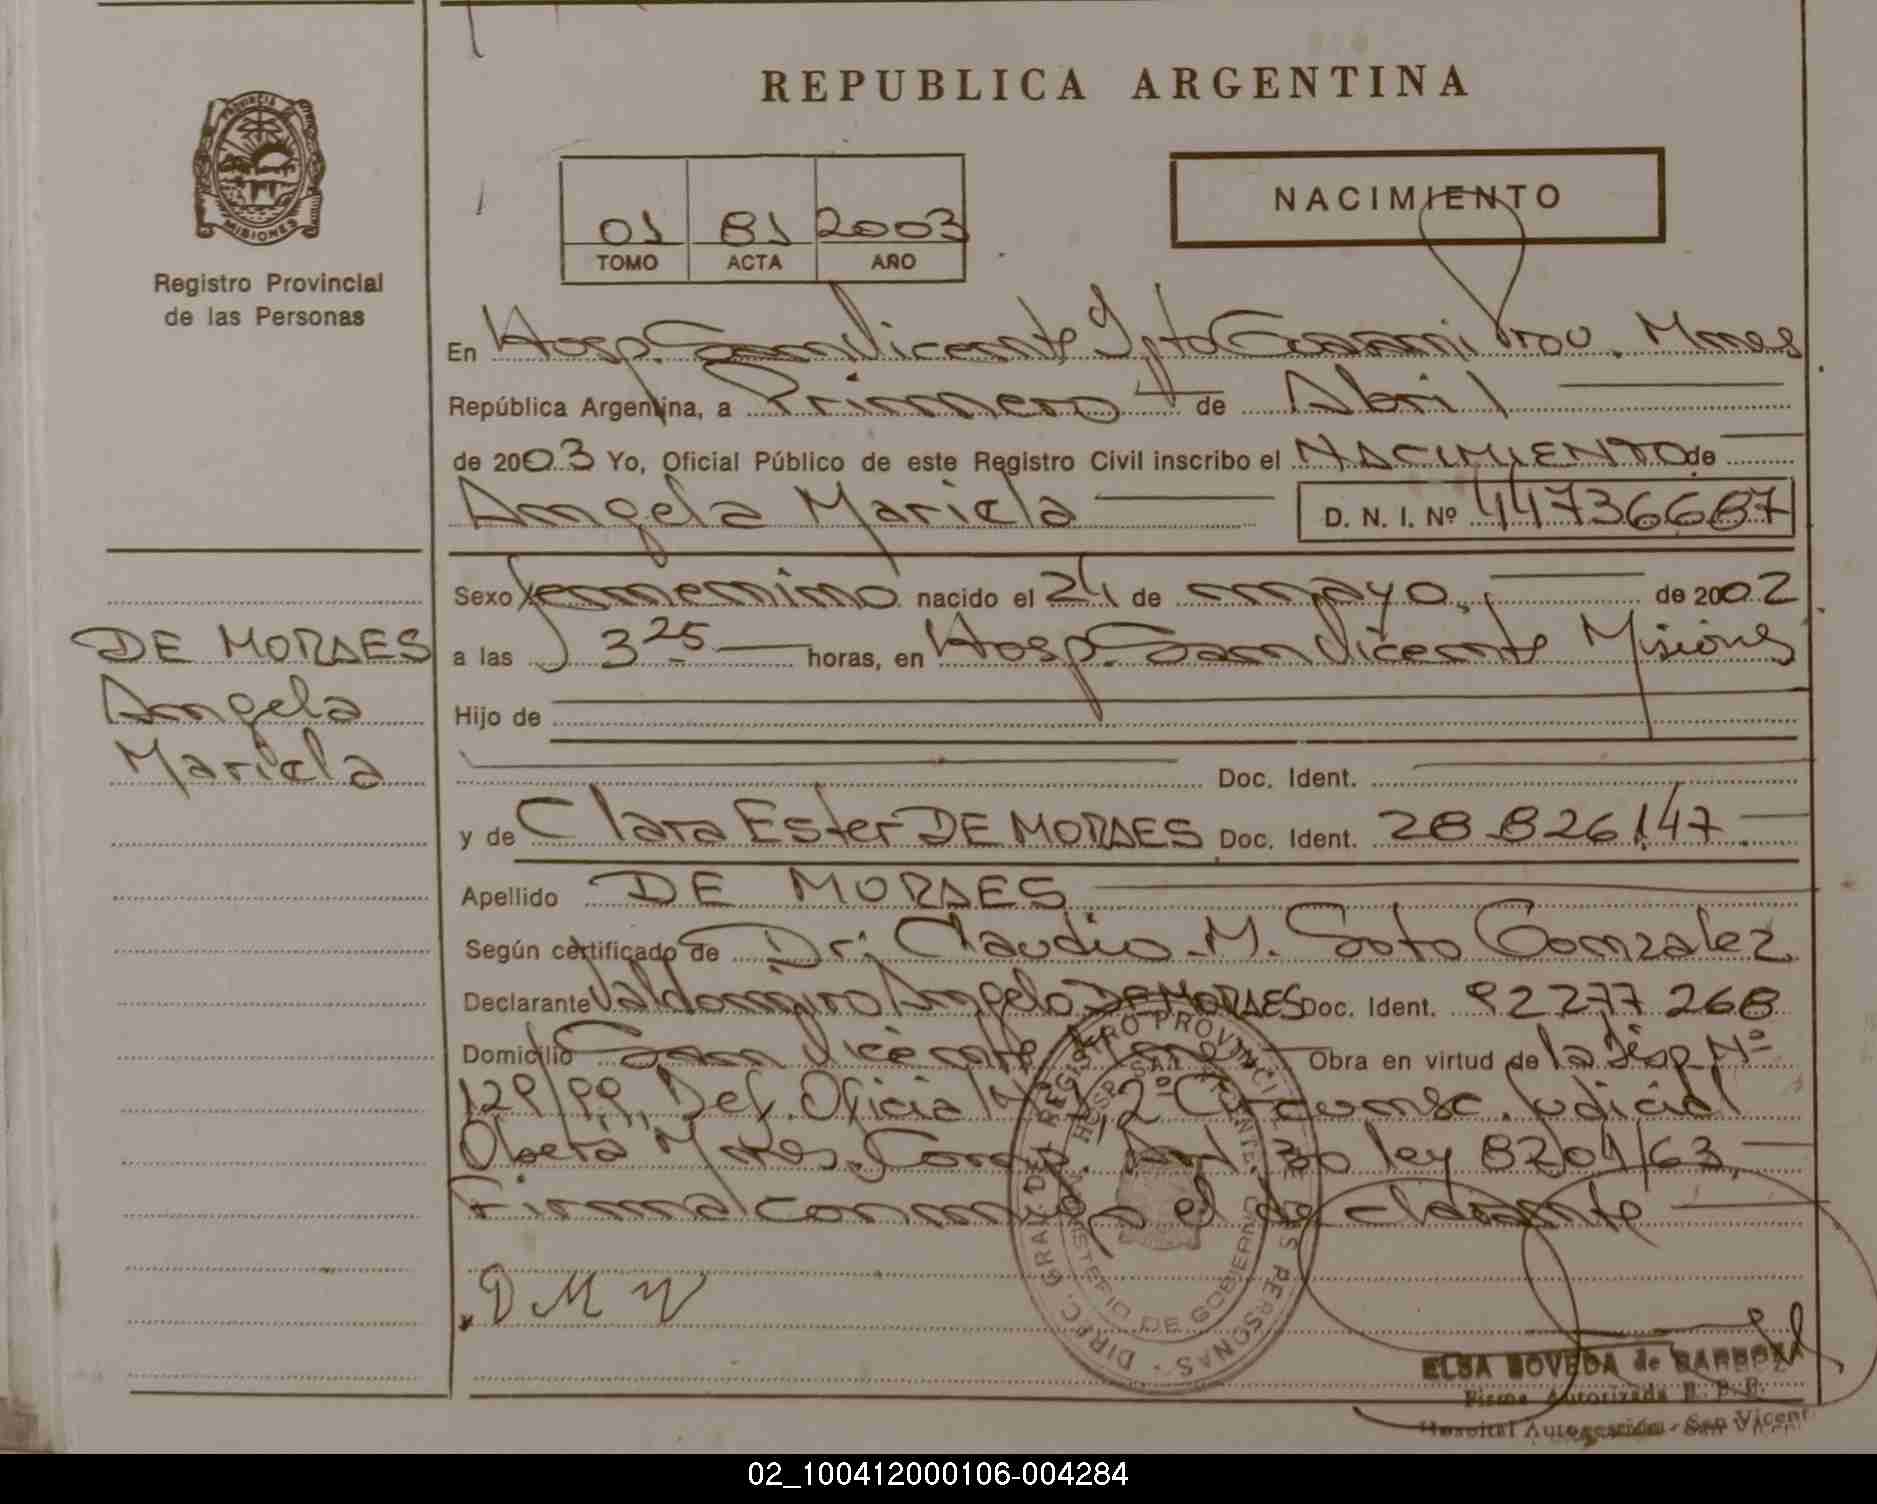 REPUBLICA ARGENTINA
PROVINCIA
MISIONES
Registro Provincial
de las Personas
01 81 2003
TOMO ACTA AÑO
NACIMIENTO
En Hosp. San Vicente Dpto Guarani Prov. Mnes
República Argentina, a Primero de Abril
de 2003 Yo, Oficial Público de este Registro Civil inscribo el NACIMIENTO de
Angela Mariela D. N. I. Nº 44736687
Sexo femenino nacido el 24 de mayo de 2002
a las 3 25 horas, en Hosp. San Vicente Misiones
Hijo de
Doc. Ident.
y de Clara Ester DE MORAES Doc. Ident. 28.826.147
Apellido DE MORAES
Según certificado de Dr. Claudio M. Soto Gonzalez
Declarante Valdomiro Angelo DE MORAES Doc. Ident. 92277268
Domicilio San Vicente Obra en virtud de la Disp Nº
129/99, Def. Oficial Nº 2º Circunsc. Judicial
Obera Mnes. Art 30 ley 8204/63
Firma conmigo el declarante
D M V
DE MORAES
Angela
Mariela
REGISTRO PROVINCIAL DE LAS PERSONAS
HOSP. SAN VICENTE
MINISTERIO DE GOBIERNO
ELSA BOVEDA de BARBOZA
Firma Autorizada R. P. P.
Hospital Autogestión - San Vicente
02_100412000106-004284